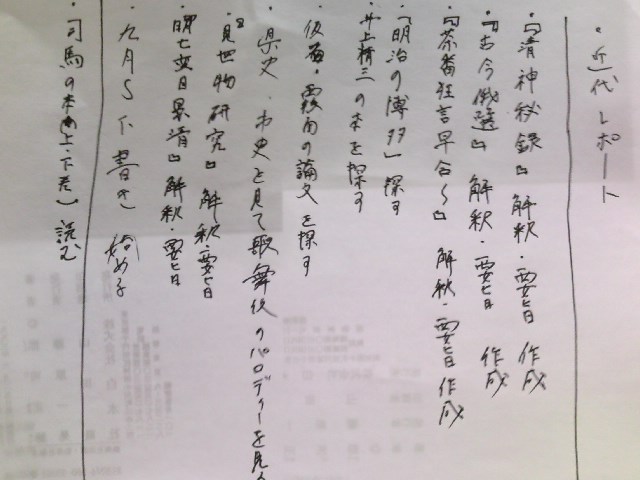 ・近代レポート
・『清神秘録』解釈・要旨 作成
・『古今俄選』解釈・要旨 作成
・『茶番狂言早合〜』解釈・要旨 作成
・「明治の博多」探す
・井上精三の本を探す
・仮面・覆面の論文を探す
・県史・市史を見て歌舞伎のパロディーを見る
・『見世物研究』解釈・要旨
・『 景清』解釈・要旨
・九月〜下書き 始める
・司馬の本(上・下巻)読む